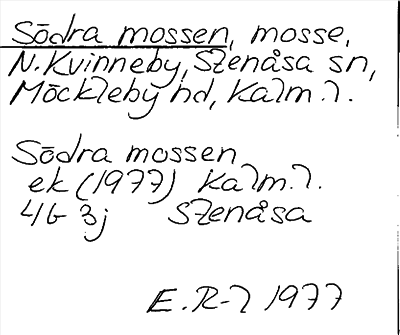 Södra mossen, mosse,
N. Kvinneby, Stenåsa sn,
Möckleby hd, Kalm. l.
Södra mossen
ek (1977) Kalm. l.
4G 3j Stenåsa
E. R-l 1977